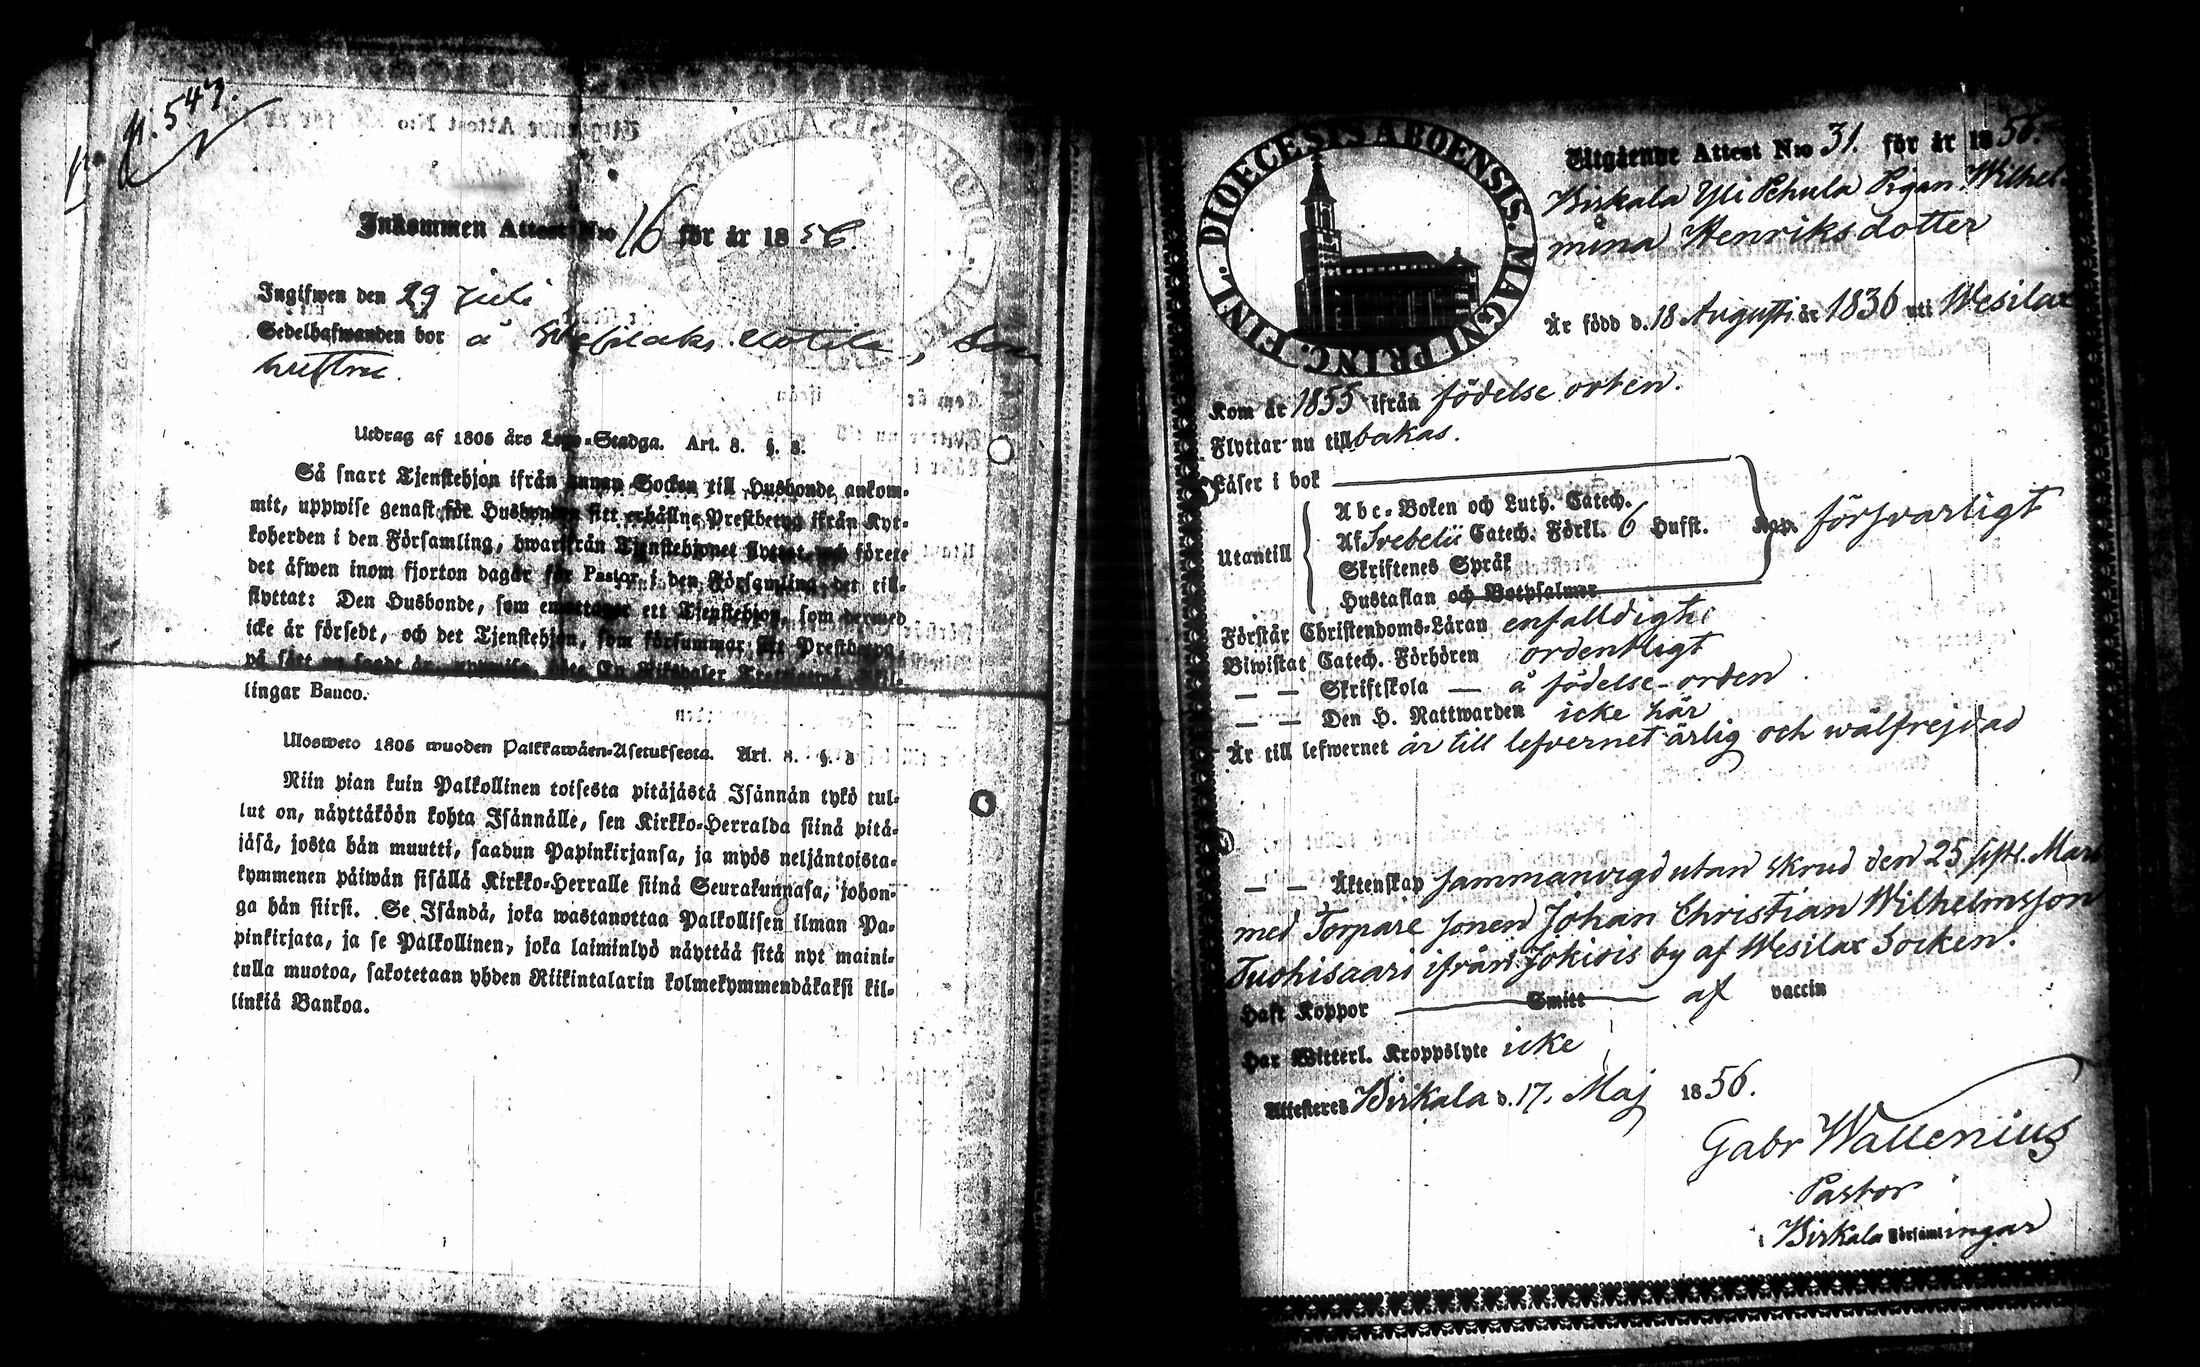 p. 547.
Inkommen Attest N:ro 16 för år 1856.
Ingifwen den 29 Juli
Sedelhafwanden bor å Wesilaks
hustru.
Utdrag af 1805 års Lego-Stadga. Art. 8. §. 8.
Så snart Tjenstehjon ifrån annan Socken till Husbonde ankom-
mit, uppwise genast för Husbonden sitt erhållne Prestbetyg ifrån Kyr-
koherden i den Församling, hwarifrån Tjenstehjonet flyttat, och förete
det äfwen inom fjorton dagar för Pastor i den Församling det till-
flyttat: Den Husbonde, som emottager ett Tjenstehjon, som dermed
icke är försedt, och det Tjenstehjon, som försummar sitt Prestbetyg,
på sätt nu sagdt är, uppwisa, böte En Riksdaler Trettiotwå Skil-
lingar Banco.
Uloswето 1805 wuoden Palkkawäen-Asetuksesta. Art. 8. §. 8
Niin pian kuin Palkollinen toisesta pitäjästä Isännän tykö tul-
lut on, näyttäköön kohta Isännälle, sen Kirkko-Herralda siinä pitä-
jäsä, josta hän muutti, saadun Papinkirjansa, ja myös neljäntoista-
kymmenen päiwän sisällä Kirkko-Herralle siinä Seurakunnasa, johon-
ga hän siirsi. Se Isändä, joka wastanottaa Palkollisen ilman Pa-
pinkirjata, ja se Palkollinen, joka laiminlyö näyttää sitä nyt maini-
tulla muotoa, sakotetaan yhden Riikintalarin kolmekymmendäkaksi kil-
linkiä Bankoa.
FINL. DIOECESIS ABOENSIS. MAGNI PRINC.
Utgående Attest N:ro 31. för år 1856.
Birkala Yli Pehula Pigan Wilhel-
mina Henriksdotter
Är född d. 18 Augusti år 1836 uti Wesilax
Kom år 1855 ifrån födelse orten.
Flyttar nu tillbakas.
Läser i bok
Abc-Boken och Luth. Catech.
Utantill Af Svebelii Catech. Förkl. 6 Hufst. Kap. försvarligt
Skriftenes Språk
Hustaflan och Botpsalmer
Förstår Christendoms-Läran enfalldigt
Biwistat Catech. Förhören ordentligt
— — Skriftskola — å födelse-orden
— — Den H. Nattwarden icke här
Är till lefwernet är till lefvernet ärlig och wälfrejdad
— — Äktenskap sammanvigd utan skrud den 25 sistl. Mars
med Torpare sonen Johan Christian Wilhelmsson
Tuohisaari ifrån Jokiois by af Wesilax Socken.
Haft Koppor Smitt af vaccin
Har Witterl. Kroppslyte icke
Attesteres Birkala d. 17. Maj 1856.
Gabr Wallenius
Pastor
i Birkala Församlingar